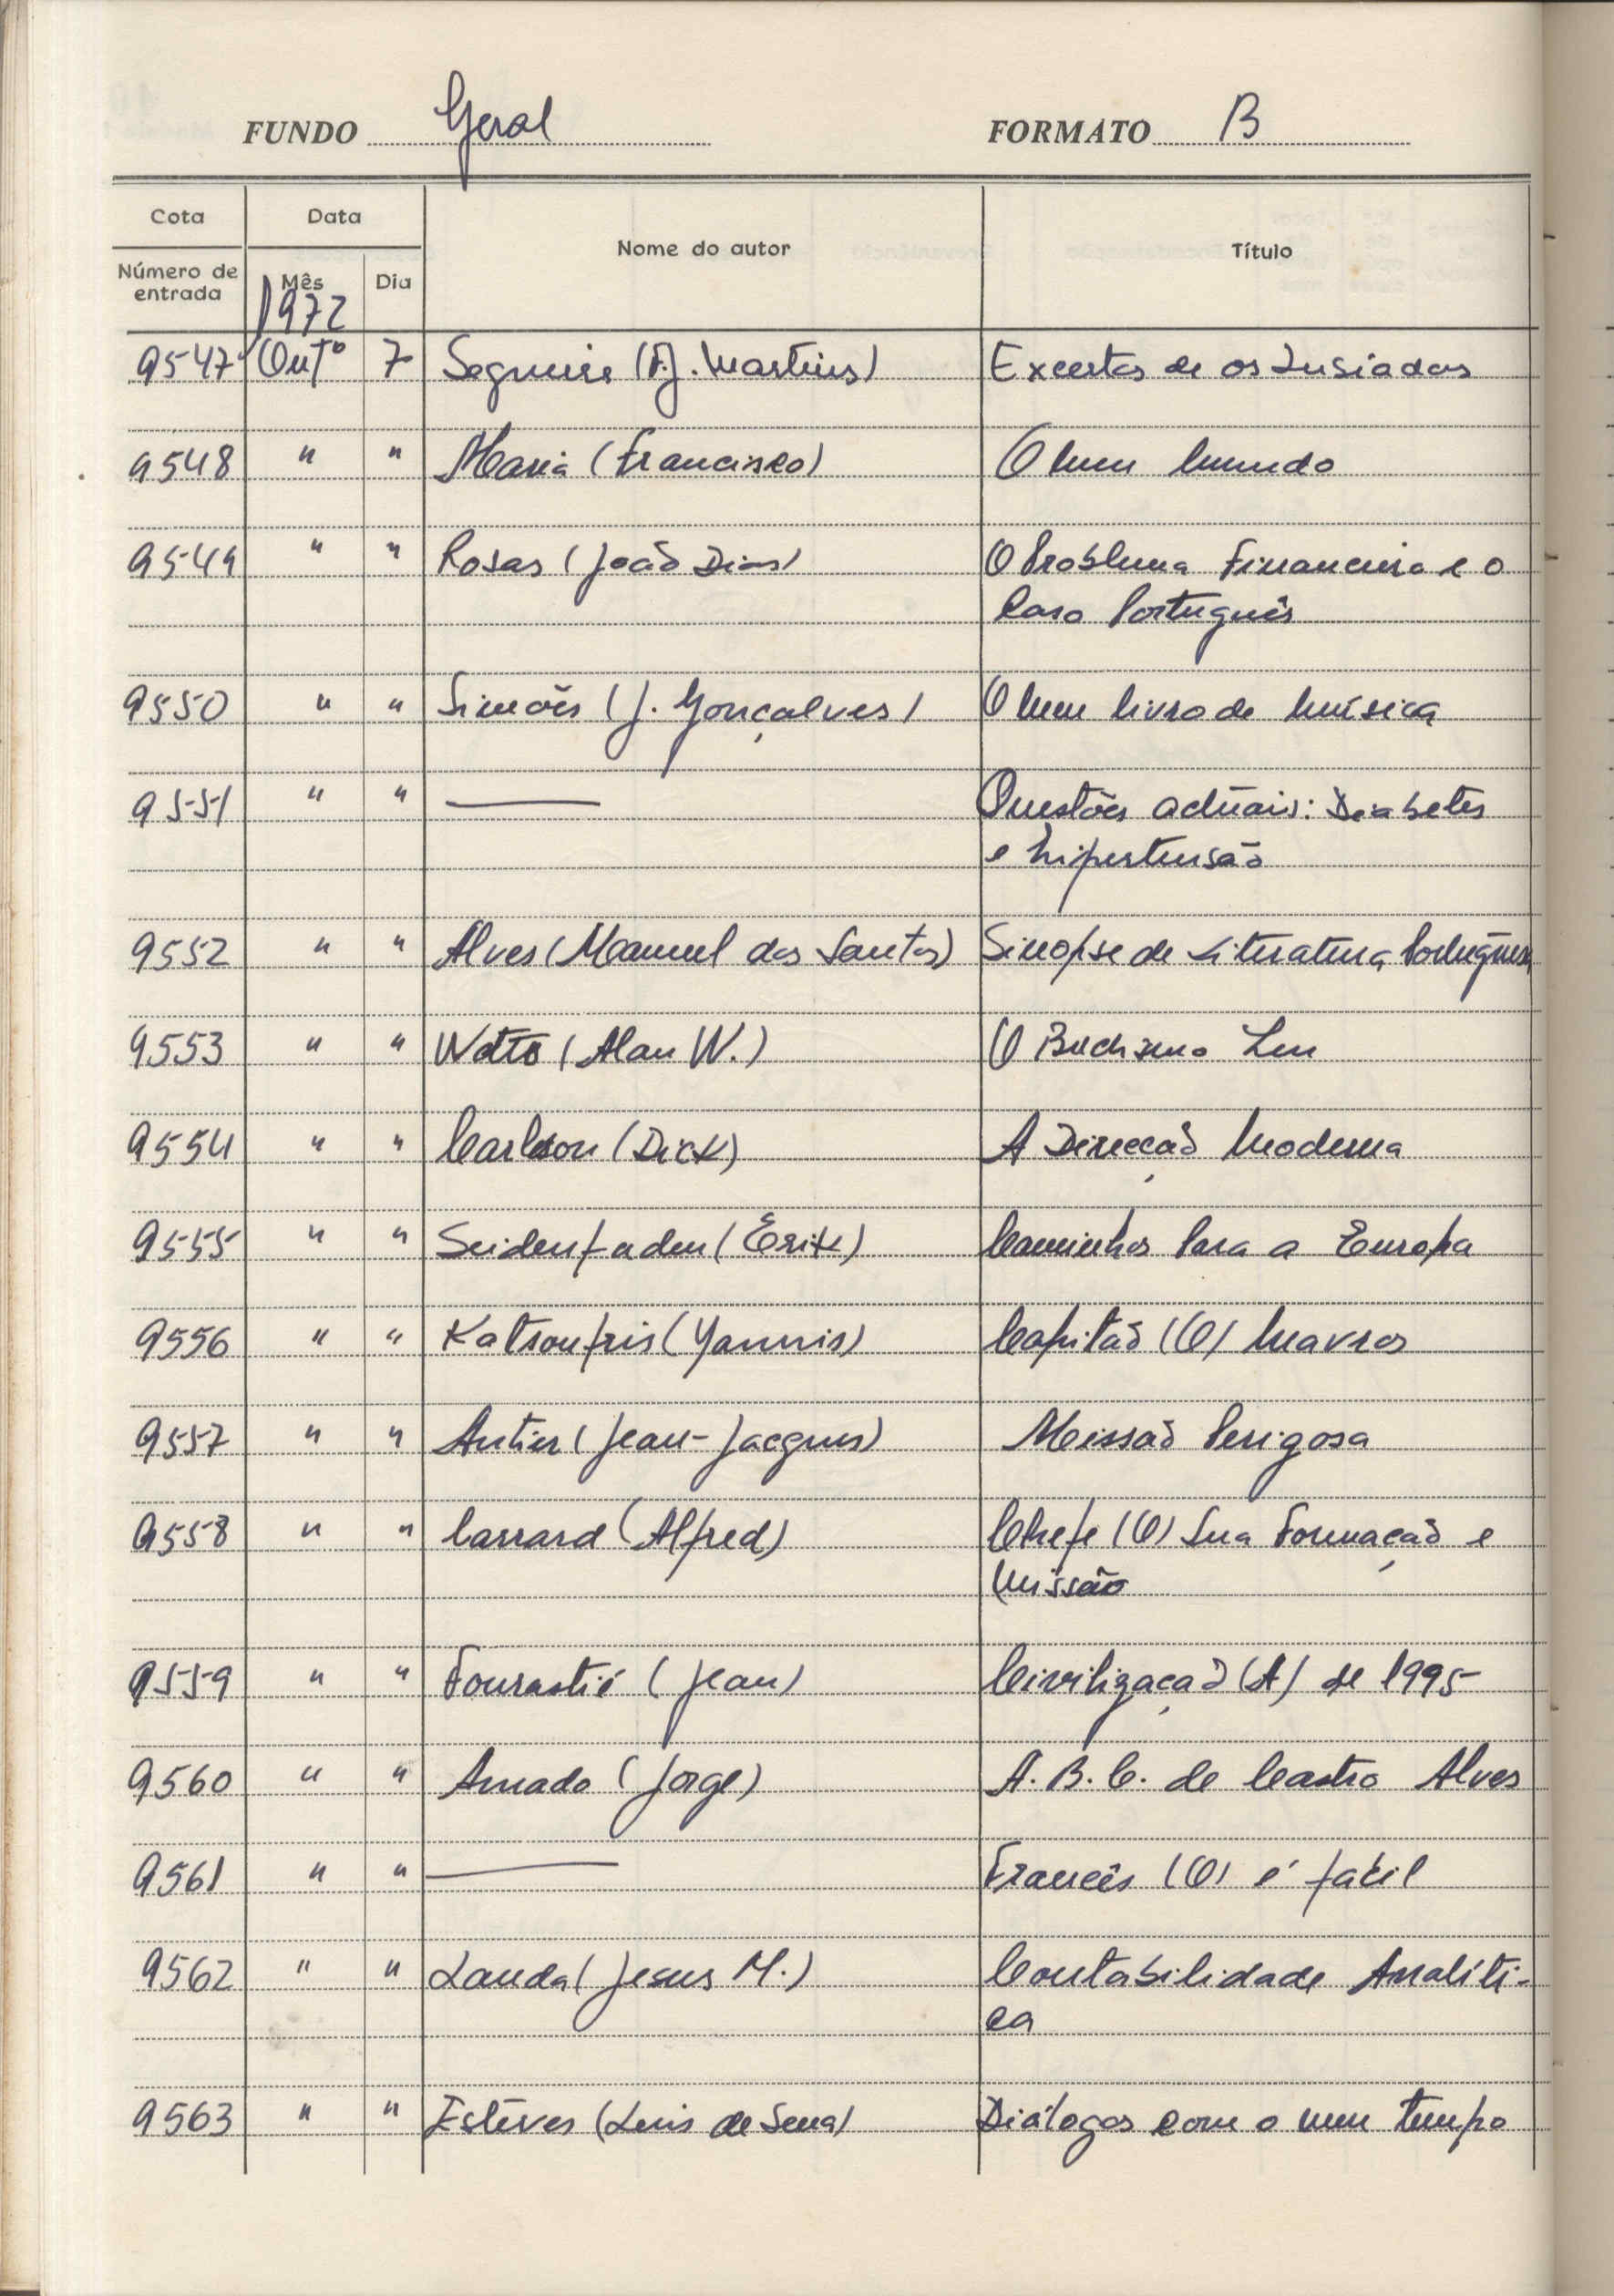 FUNDO Geral FORMATO B
Cota Data Nome do autor Título
Número de entrada Mês Dia
1972
9547 Outº 7 Segueira (F.J. Martins) Excertos de os Lusiadas
9548 " " Maria (Francisco) O meu mundo
9549 " " Rosas (João Dias) O Problema Financeiro e o
Caso Português
9550 " " Simões (J. Gonçalves) O meu livro de música
9551 " " — Questões actuais: Diabetes
e hipertensão
9552 " " Alves (Manuel dos Santos) Sinopse de Literatura Portuguesa
9553 " " Watts (Alan W.) O Budismo Zen
9554 " " Carlson (Dick) A Direcção Moderna
9555 " " Seidenfaden (Erik) Caminhos Para a Europa
9556 " " Katsoufris (Yannis) Capitão (O) Mavros
9557 " " Antier (Jean-Jacques) Missão Perigosa
9558 " " Carrard (Alfred) Chefe (O) Sua Formação e
Missão
9559 " " Fourastié (Jean) Civilização (A) de 1995
9560 " " Amado (Jorge) A. B. C. de Castro Alves
9561 " " — Francês (O) é fácil
9562 " " Landa (Jesus M.) Contabilidade Analiti-
ca
9563 " " Esteves (Luis de Sena) Diálogos com o meu tempo